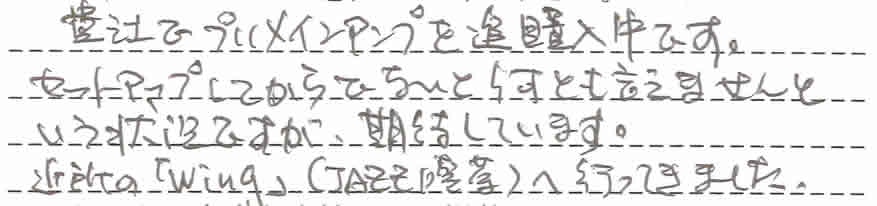 貴社でプリメインアンプを追購入中です。
セットアップしてからでないと何とも言えませんと
いう状況ですが、期待しています。
近所の「Wing」(JAZZ喫茶)へ行ってきました。